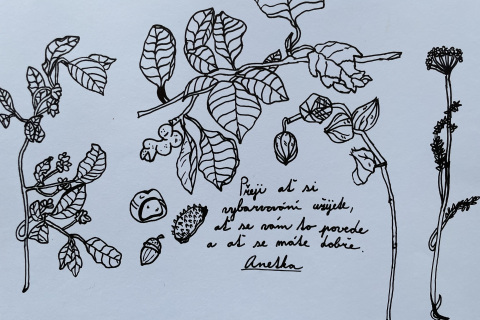 Přeji ať si
vybarvování užijete,
ať se vám to povede
a ať se máte dobře.
Anežka